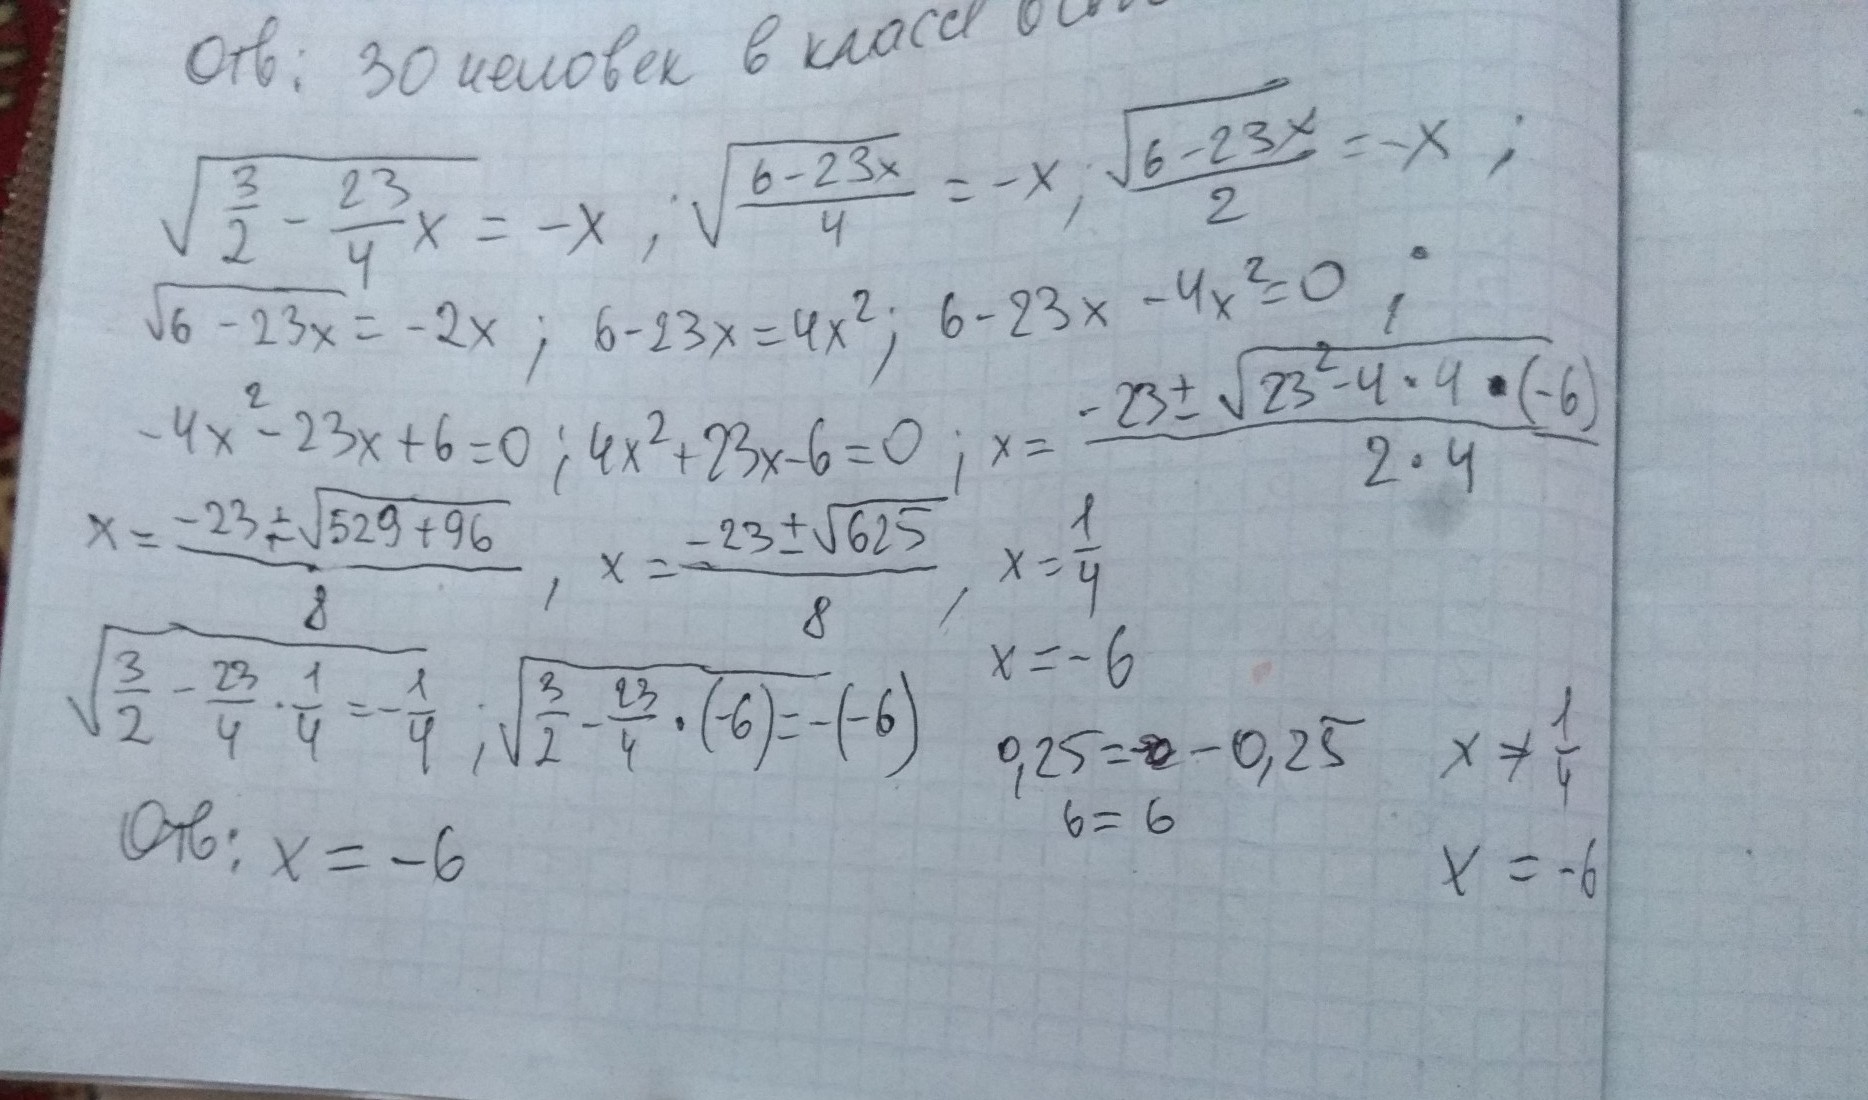 Отв: 30 человек в классе
√(3/2 - 23/4 x) = -x ; √((6-23x)/4) = -x ; √(6-23x)/2 = -x ;
√(6-23x) = -2x ; 6-23x=4x² ; 6-23x-4x²=0 ;
-4x²-23x+6=0 ; 4x²+23x-6=0 ; x= (-23±√(23²-4·4·(-6)))/(2·4)
x= (-23±√(529+96))/8 , x= (-23±√625)/8 , x= 1/4
x=-6
√(3/2 - 23/4 · 1/4) = -1/4 ; √(3/2 - 23/4 · (-6)) = -(-6)
0,25= -0,25 x≠ 1/4
6=6
Отв: x=-6
x = -6